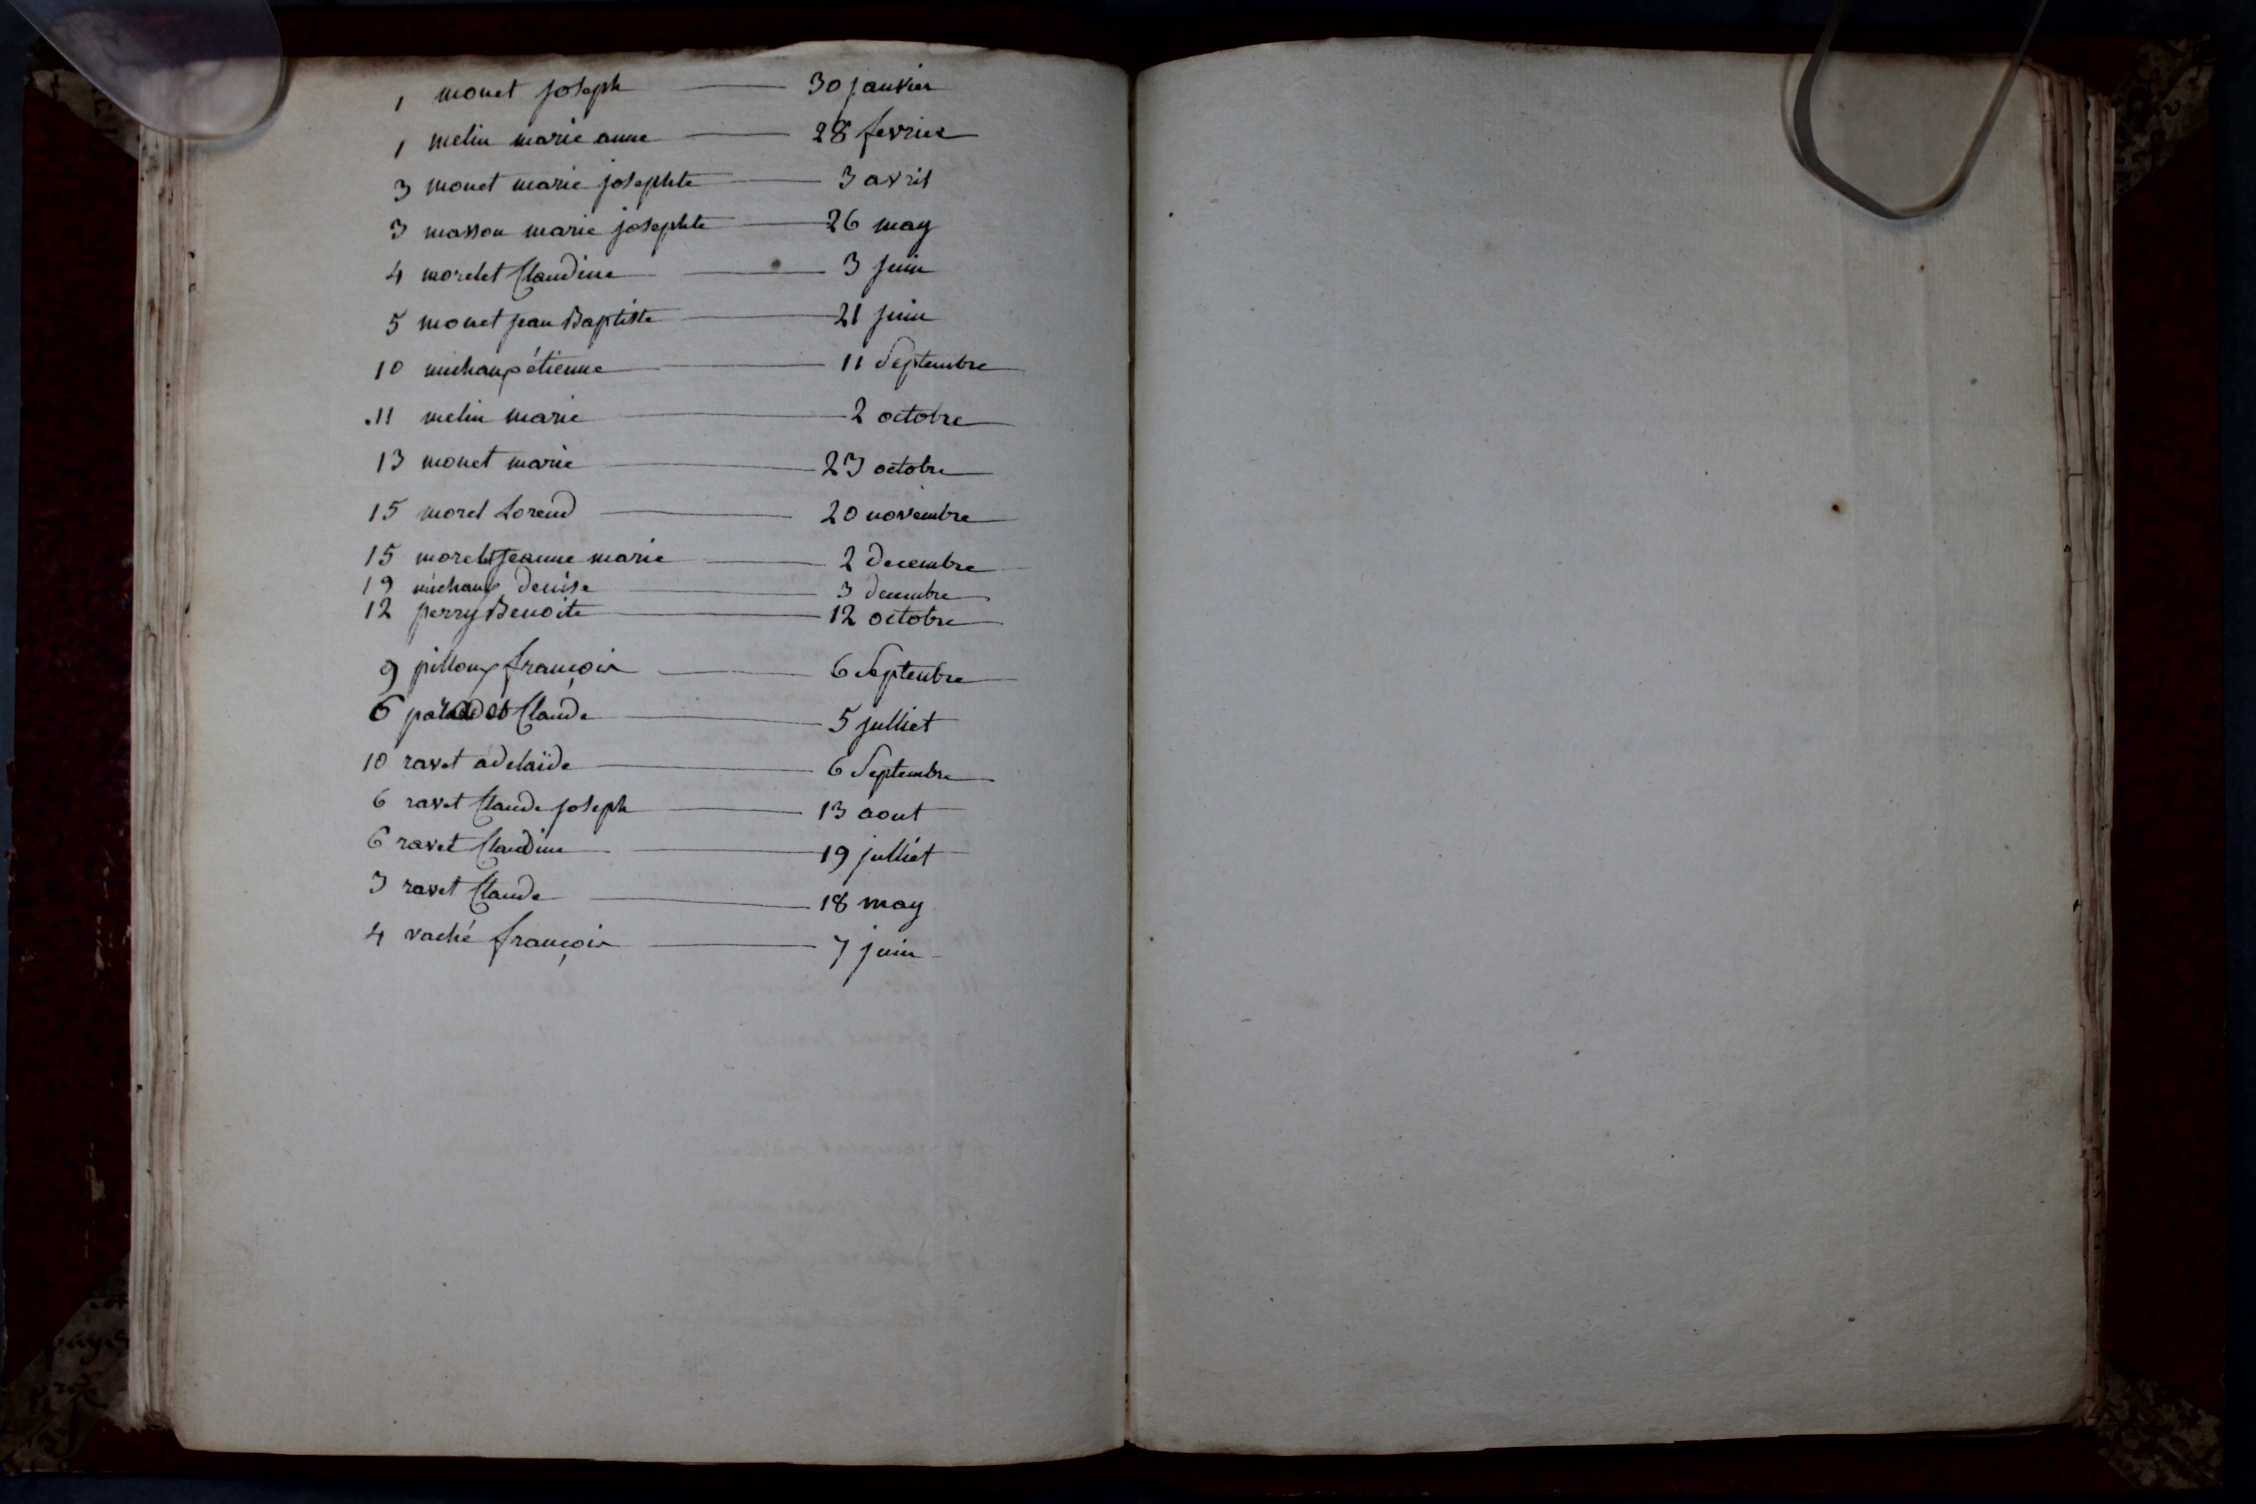 1 monet joseph 30 janvier
1 melin marie anne 28 fevrier
3 monet marie josephte 3 avril
3 masson marie josephte 26 may
4 morelet Claudine 3 juin
5 monet jean Baptiste 21 juin
10 michaux étienne 11 Septembre
11 melin marie 2 octobre
13 monet marie 23 octobre
15 morel Lorend 20 novembre
15 morel jeanne marie 2 decembre
19 michaux denise 3 decembre
12 perry Benoite 12 octobre
9 pilloux françois 6 Septenbre
6 Claude 5 julliet
10 ravet adelaïde 6 Septembre
6 ravet Claude joseph 13 aout
6 ravet Claudine 19 julliet
3 ravet Claude 18 may
4 vaché françois 7 juin